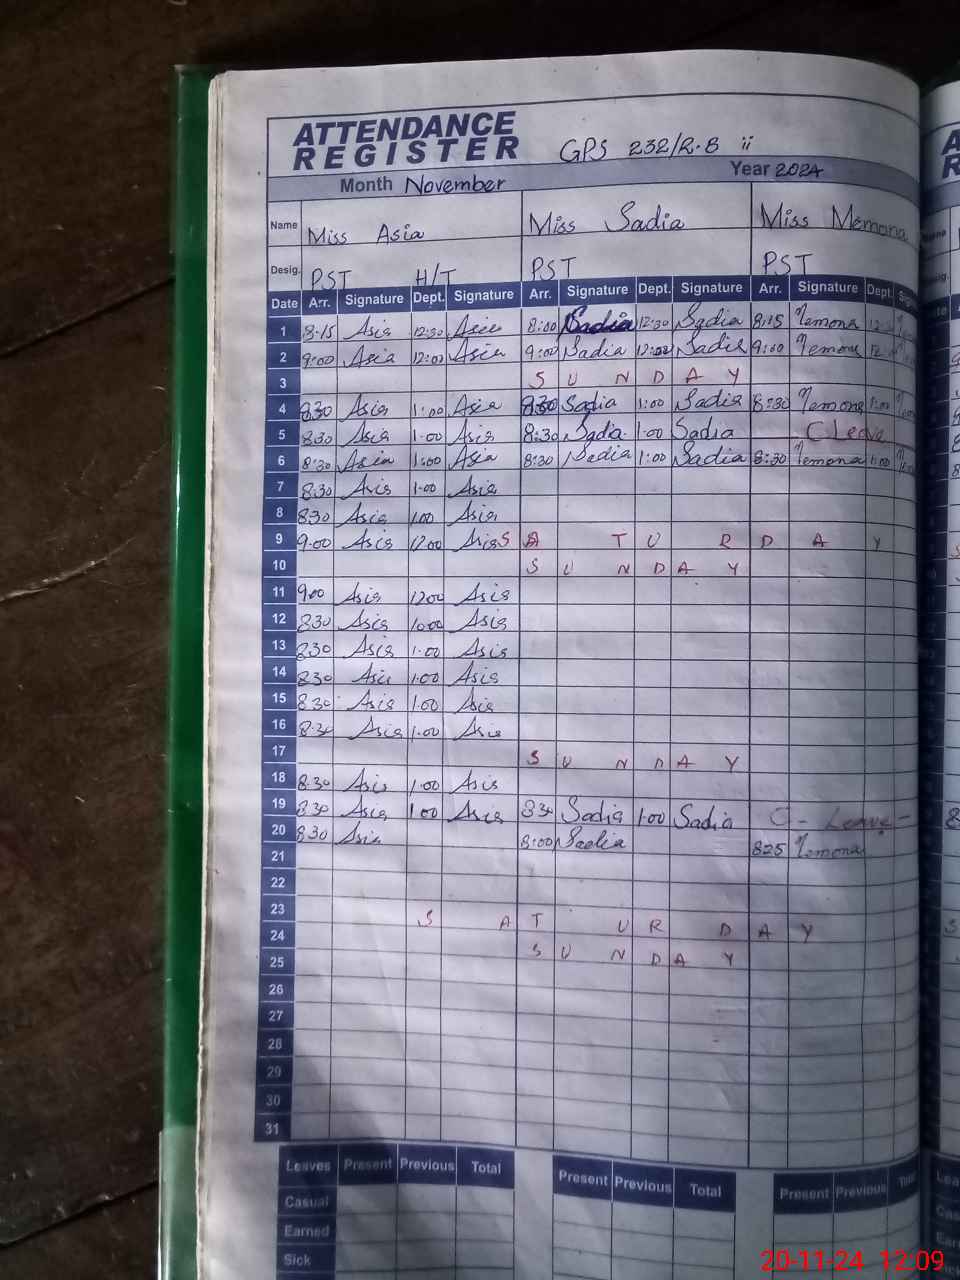 ATTENDANCE
REGISTER GPS 232/R.B ii
Month November Year 2024
Name Miss Asia Miss Sadia Miss Memona
Desig. PST H/T PST PST
Date Arr. Signature Dept. Signature Arr. Signature Dept. Signature Arr. Signature Dept.
1 8-15 Asia 12:30 Asia 8:00 Sadia 12:30 Sadia 8:15 Memona
2 9:00 Asia 12:00 Asia 9:00 Sadia 12:00 Sadia 9:00 Memona
3 S U N D A Y
4 830 Asia 1:00 Asia 830 Sadia 1:00 Sadia 8:30 Memona 1:00
5 830 Asia 1:00 Asia 8:30 Sadia 1:00 Sadia C Leave
6 8:30 Asia 1:00 Asia 8:30 Sadia 1:00 Sadia 8:30 Memona 1:00
7 8:30 Asia 1.00 Asia
8 830 Asia 1.00 Asia
9 9.00 Asia 12.00 Asia S A T U R D A Y
10 S U N D A Y
11 9.00 Asia 1200 Asia
12 830 Asia Asia
13 830 Asia 1.00 Asia
14 830 Asia 1.00 Asia
15 8.30 Asia 1.00 Asia
16 8.30 Asia 1.00 Asia
17 S U N D A Y
18 8.30 Asia 1.00 Asia
19 830 Asia 1.00 Asia 830 Sadia 1.00 Sadia C - Leave -
20 830 Asia 8:00 Sadia 825 Memona
21
22
23 S A T U R D A Y
24 S U N D A Y
25
26
27
28
29
30
31
Leaves Present Previous Total Present Previous Total Present Previous Total
Casual
Earned
Sick
20-11-24 12:09